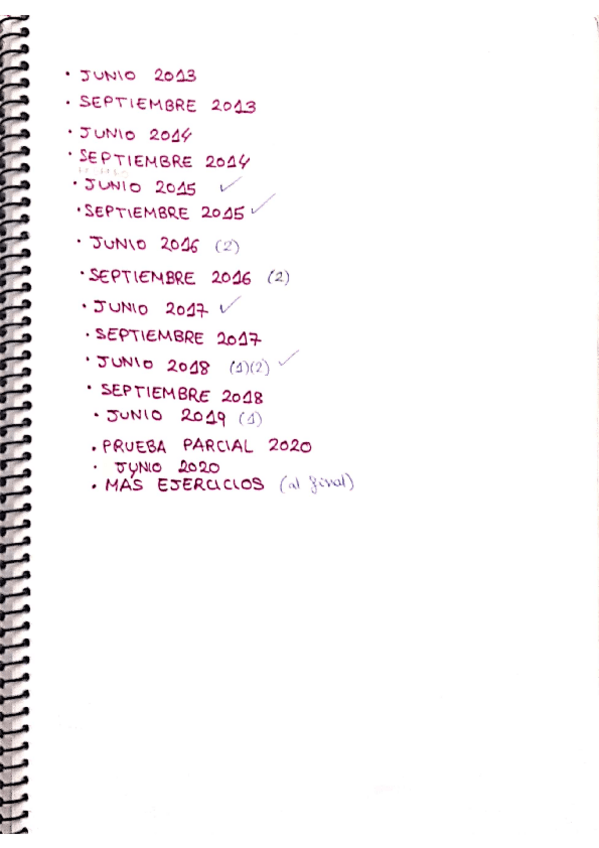 · JUNIO 2013
· SEPTIEMBRE 2013
· JUNIO 2014
· SEPTIEMBRE 2014
· JUNIO 2015 ✓
· SEPTIEMBRE 2015 ✓
· JUNIO 2016 (2)
· SEPTIEMBRE 2016 (2)
· JUNIO 2017 ✓
· SEPTIEMBRE 2017
· JUNIO 2018 (1)(2) ✓
· SEPTIEMBRE 2018
· JUNIO 2019 (1)
· PRUEBA PARCIAL 2020
· JUNIO 2020
· MAS EJERCICIOS (al final)